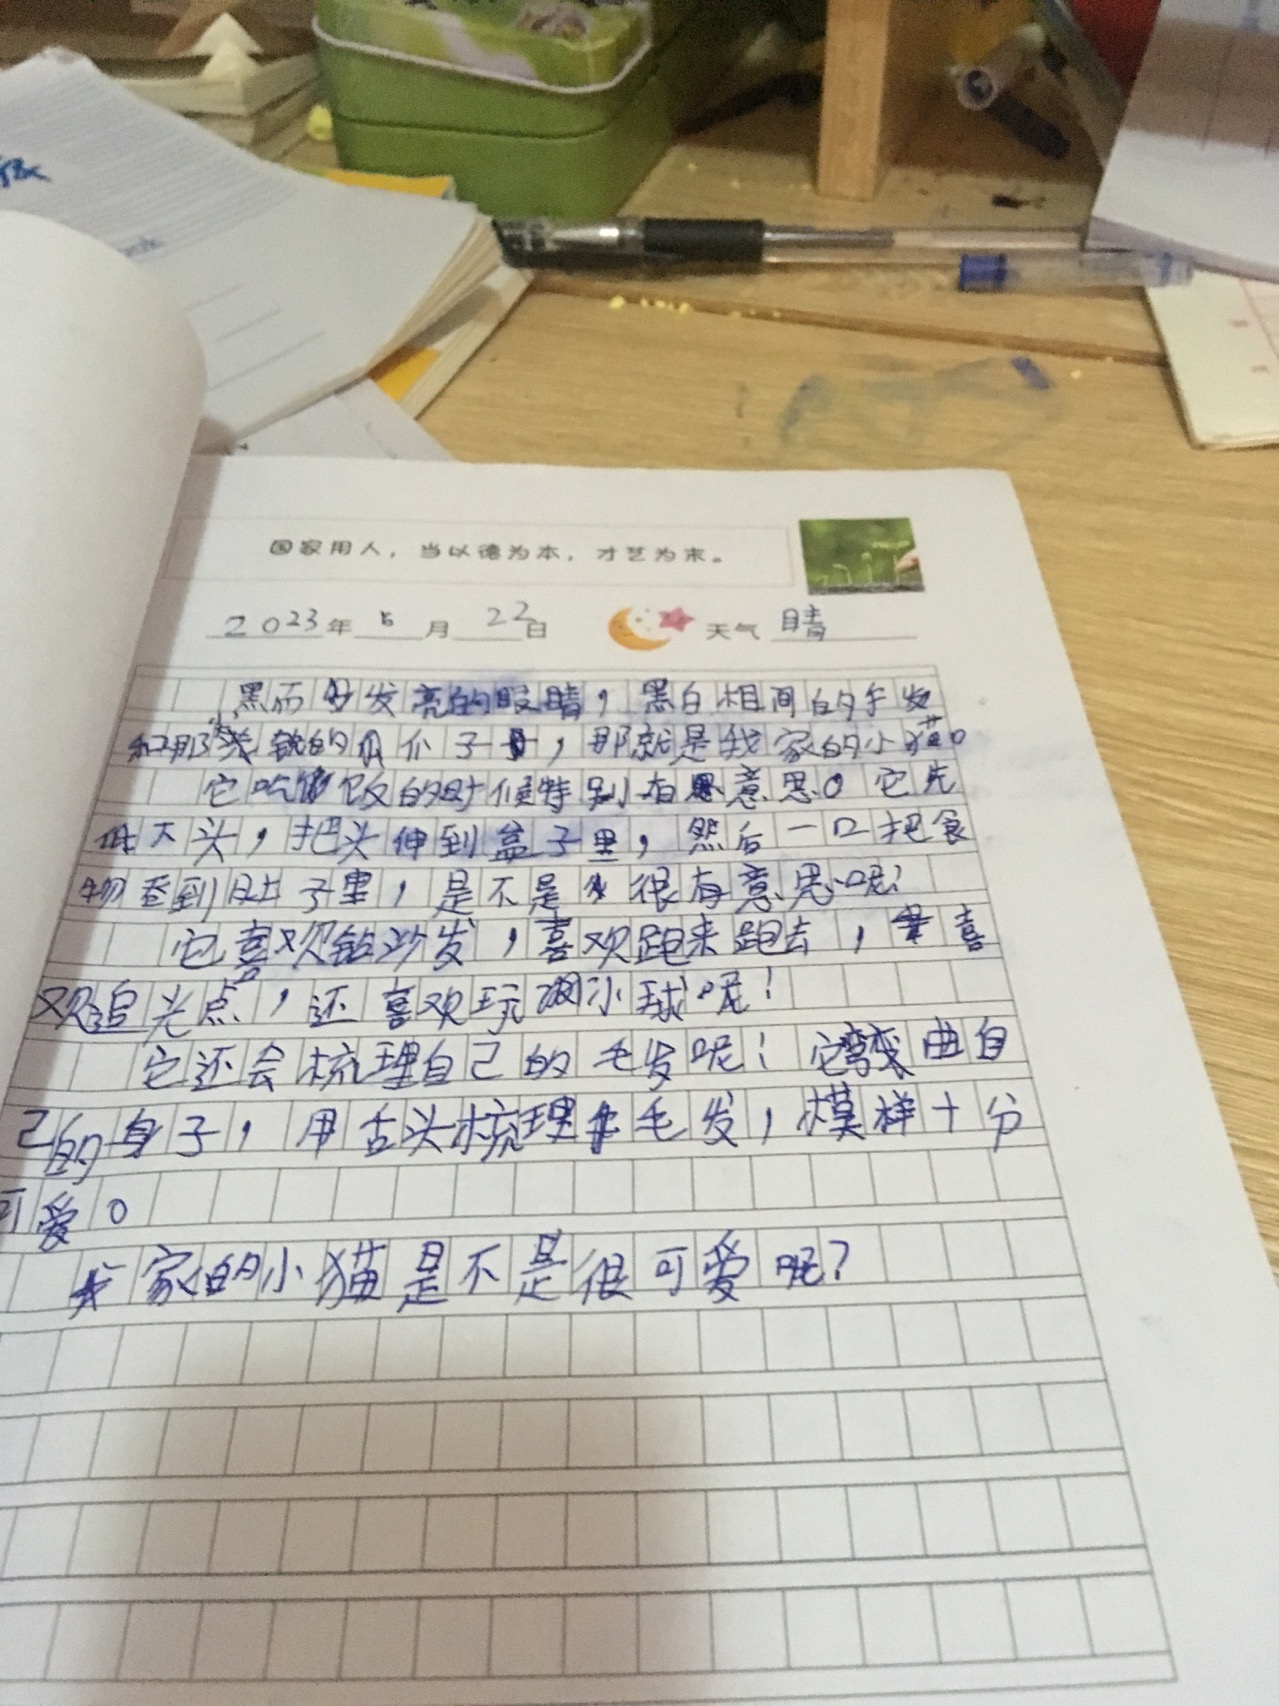 国家用人，当以德为本，才艺为末。
2023年5月22日 天气 晴
黑而发亮的眼睛，黑白相间的毛发
和那尖锐的爪子，那就是我家的小猫。
它吃饭的时候特别有意思。它先
低下头，把头伸到盆子里，然后一口把食
物吞到肚子里，是不是很有意思呢？
它喜欢钻沙发，喜欢跑来跑去，喜
欢追光点，还喜欢玩小球呢！
它还会梳理自己的毛发呢！它弯曲自
己的身子，用舌头梳理毛发，模样十分
可爱。
我家的小猫是不是很可爱呢？